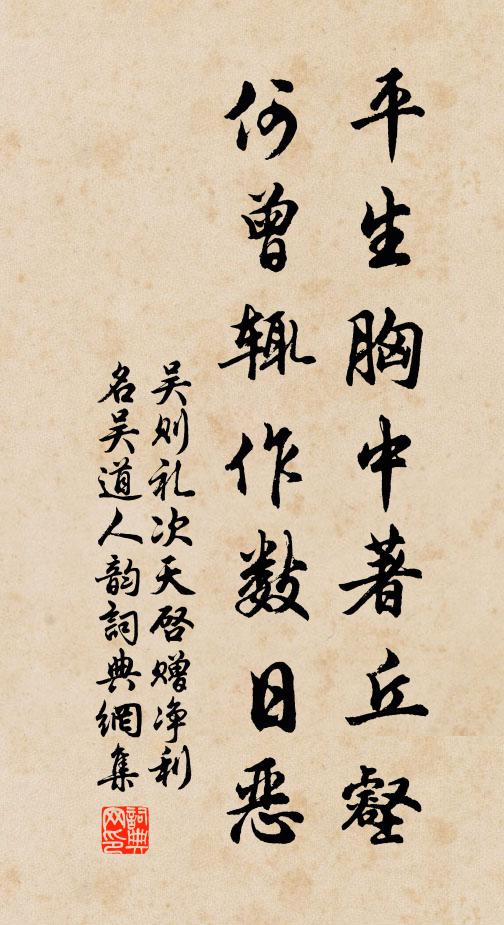 平生胸中著丘壑
何曾辄作数日恶
吴则礼次天启赠净利
名吴道人韵詞典網集
詞典网印